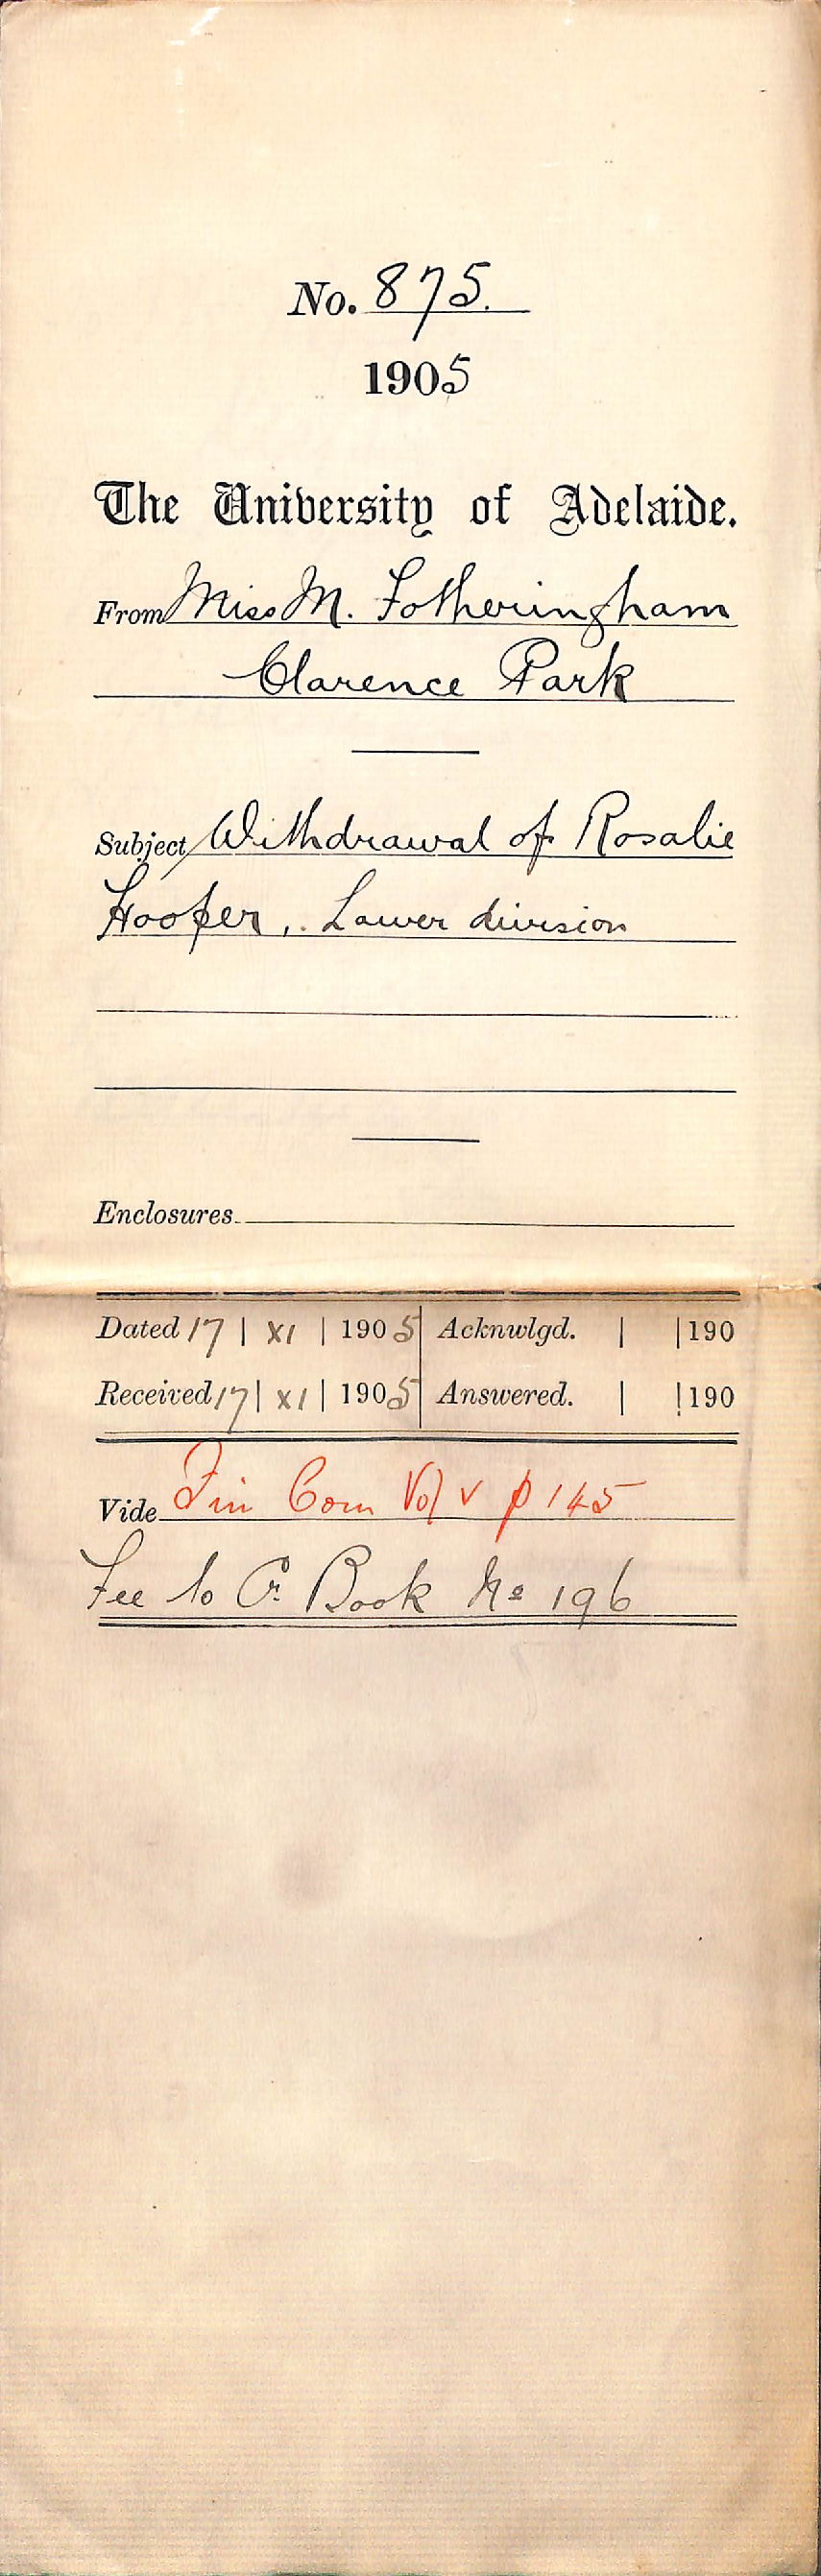 No. 875.
1905
The University of Adelaide.
From Miss M. Fotheringham
Clarence Park
Subject Withdrawal of Rosalie
Hooper, Lower division
Enclosures
Dated 17 | XI | 1905 Acknwlgd. | | 190
Received 17 | XI | 1905 Answered. | | 190
Vide Fin Com Vol V p 145
Fee to Cr. Book No 196